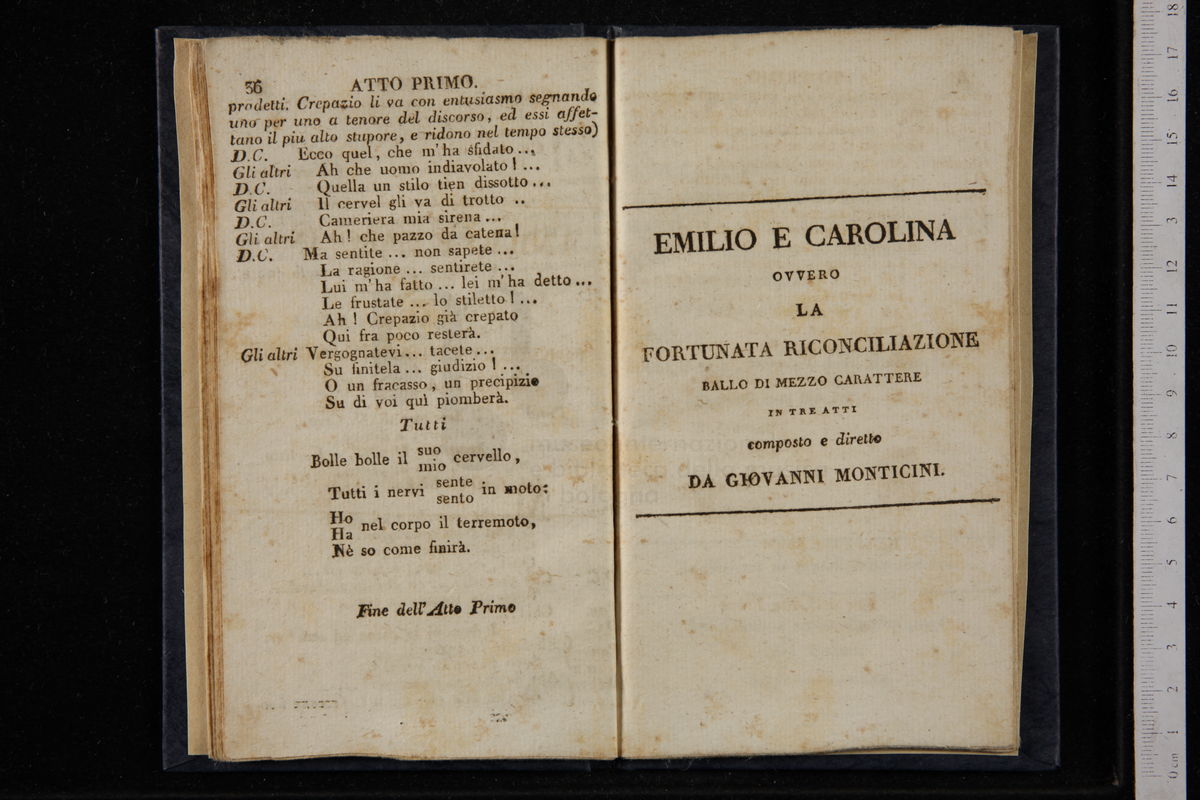 36 ATTO PRIMO.
prodetti. Crepazio li va con entusiasmo segnando
uno per uno a tenore del discorso, ed essi affet-
tano il piu alto stupore, e ridono nel tempo stesso)
D.C. Ecco quel, che m'ha sfidato...
Gli altri Ah che uomo indiavolato! ...
D.C. Quella un stilo tien dissotto...
Gli altri Il cervel gli va di trotto ..
D.C. Cameriera mia sirena...
Gli altri Ah! che pazzo da catena!
D.C. Ma sentite ... non sapete ...
La ragione ... sentirete ...
Lui m'ha fatto ... lei m'ha detto...
Le frustate ... lo stiletto! ...
Ah! Crepazio già crepato
Qui fra poco resterà.
Gli altri Vergognatevi... tacete...
Su finitela... giudizio! ...
O un fracasso, un precipizio
Su di voi quì piomberà.
Tutti
Bolle bolle il suo cervello,
mio
Tutti i nervi sente in moto:
sento
Ho nel corpo il terremoto,
Ha
Nè so come finirà.
Fine dell'Atto Primo
EMILIO E CAROLINA
OVVERO
LA
FORTUNATA RICONCILIAZIONE
BALLO DI MEZZO CARATTERE
IN TRE ATTI
composto e diretto
DA GIOVANNI MONTICINI.
0 cm 1 2 3 4 5 6 7 8 9 10 11 12 13 14 15 16 17 18